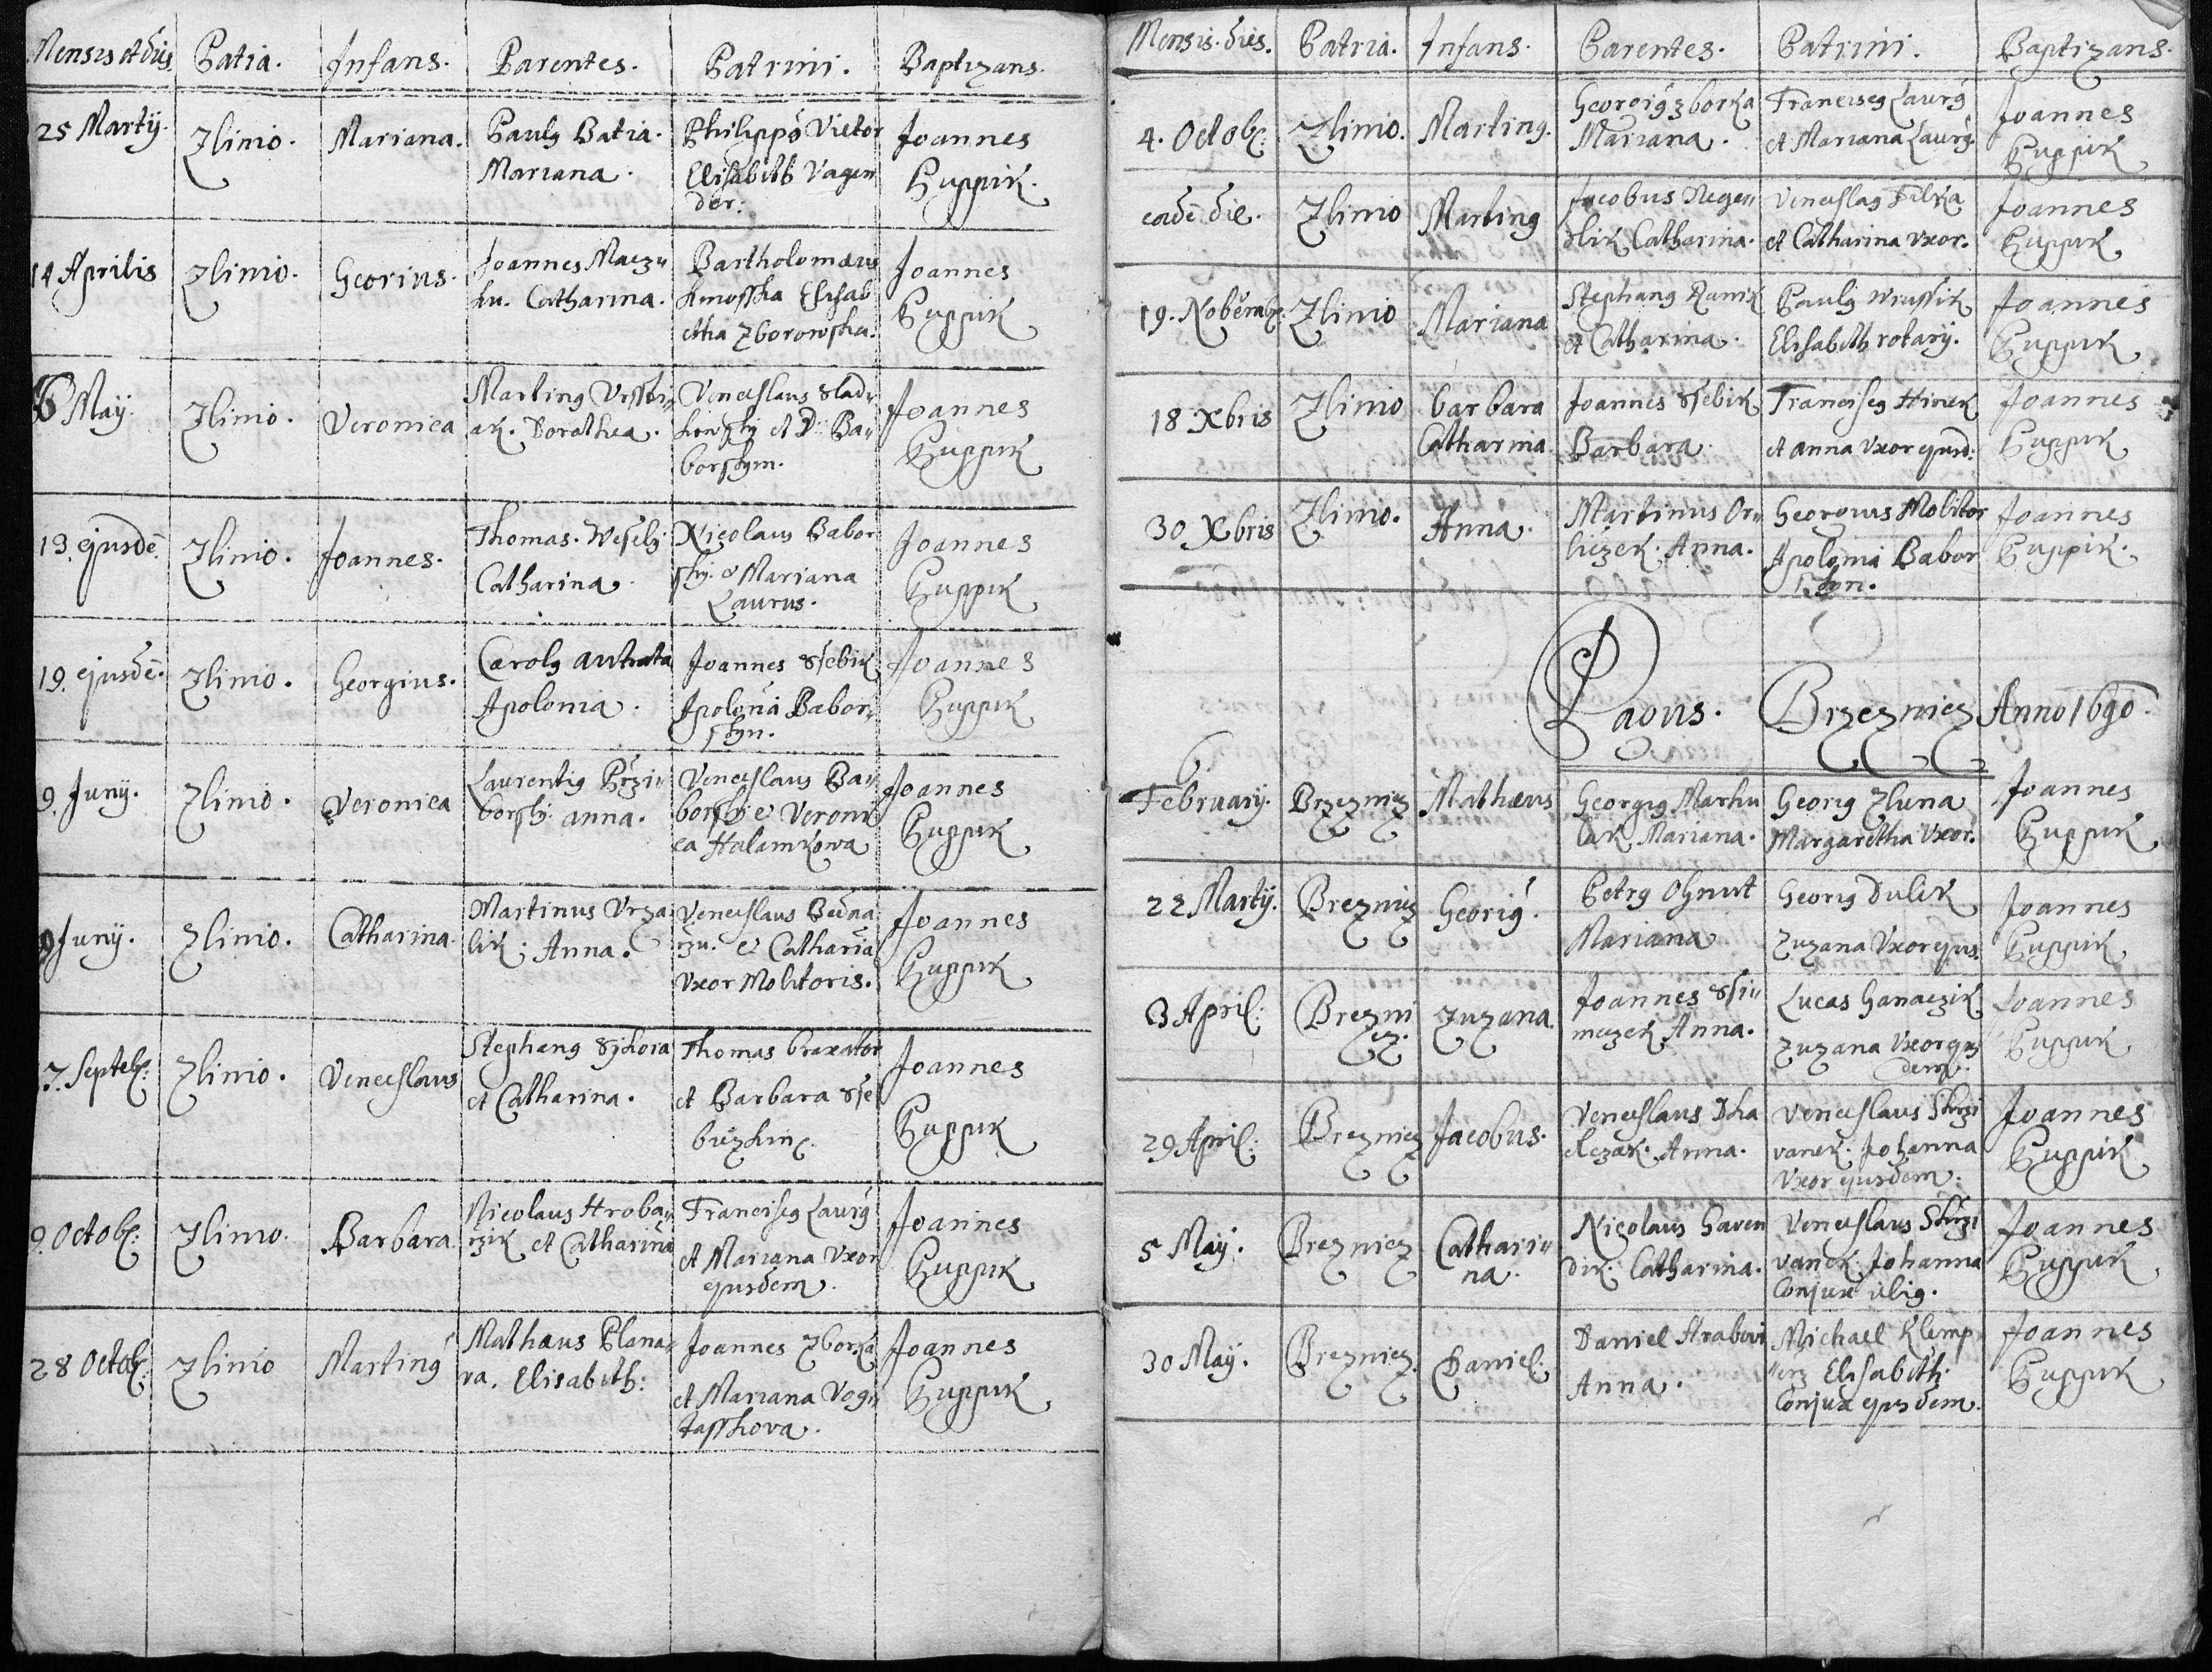 Mensis et dies Patria. Infans. Parentes. Patrini. Baptizans.
25 Martij. Zlinio. Mariana. Paulg Batia. Mariana. Philippó Victor Elisabeth Vagen der. Joannes Cuppik.
14 Aprilis Zlinio. Georius. Joannes Macz„ ku. Catharina. Bartholomæus Elisab etha Zborowska. Joannes Cuppik
6 Maij. Zlinio. Veronica Marting ak. Dorothea. Venceslaus Slad„ et D: Ba„ borskym. Joannes Cuppik
13. ejusdē. Zlinio. Joannes. Thomas. Weselý Catharina. Nicolaus Babor ský. et Mariana Laurus. Joannes Cuppik
19. ejusdē. Zlinio. Georgius. Carolg Apolonia. Joannes Ssebik Apolonia Babor„ skyn. Joannes Cuppik
9. Junij. Zlinio. Veronica Laurentig Przi„ borský. anna. Venceslaus Ba„ borský et Veroni ca Halamkowa Joannes Cuppik
9 Junij. Zlinio. Catharina. Martinus Urza lik; Anna. Venceslaus et Catharia Uxor Molitoris. Joannes Cuppik
7. Septeb: Zlinio. Venceslaus Stephang Sýkora et Catharina. Thomas braxator et Barbara Sse Joannes Cuppik
9. Octob: Zlinio. Barbara Nicolaus Hroba„ rzik et Catharina Francisg Laurg et Mariana Uxor ejusdem. Joannes Cuppik
28 Octob: Zlinio Marting Mathæus Plana„ va. Elisabeth: Joannes Zborka et Mariana Vog„ tasskova. Joannes Cuppik
Mensis. dies. Patria. Infans. Parentes. Patrini. Baptizans.
4. Octob: Zlinio. Marting. Georgig Zborka Mariana. Francisg Laurg et Mariana Laurg. Joannes Cuppik
eadē die. Zlinio Marting Jacobus Nege„ dlik Catharina. Venceslag Filka et Catharina Uxor. Joannes Cuppik
19. Nobēmb: Zlinio Mariana Stephang Ranik et Catharina. Paulg Wrussik Elisabeth rotarij. Joannes Cuppik
18 Xbris Zlinio barbara Catharina Joannes Ssebik Barbara. Francisg Hinek et anna Uxor ejusd: Joannes Cuppik
30 Xbris Zlinio. Anna. Martinus Or„ liczek. Anna. Georgius Molitor Apolonia Babor skyn. Joannes Cuppik.
Pagus. Brzezniez Anno 1690.
6 February. Brzezniez Mathæus Georgig Marku lak Mariana. Georig Zluna Margaretha Uxor. Joannes Cuppik
22 Martij. Brezniez Georig. Petrg Ohnut Mariana Georig Dulik Zuzana Uxor ejus. Joannes Cuppik
3 April: Brezni ez. Zuzana. Joannes Ssi„ meczek Anna. Lucas Hanaczik Zuzana Uxor ejus dem. Joannes Cuppik
29 April: Brezniez Jacobus. Venceslaus Anna. Venceslaus Skrzi vanek. Johanna Uxor ejusdem. Joannes Cuppik
5 Maij. Brezniez Cathari„ na. Nicolaus Haven dik. Catharina. Venceslaus Skrzi vanek. Johanna Conjux illig. Joannes Cuppik
30 Maij. Brezniez. Daniel. Daniel Hrabovi Anna. Michael Klemp„ Elisabeth Conjux ejusdem. Joannes Cuppik